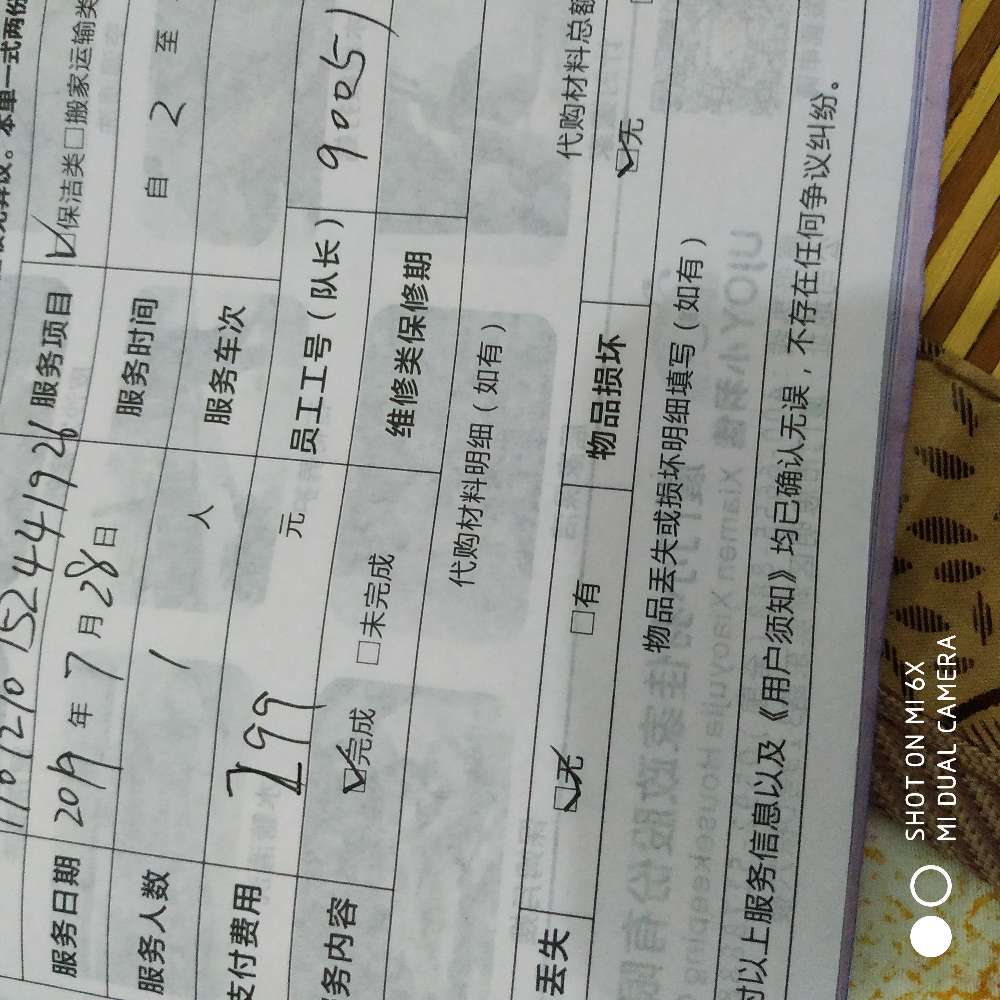 本单一式两份
11012101524441926 服务项目 ☑保洁类□搬家运输类
服务日期 2019 年 7 月 28 日 服务时间 自 2 至
服务人数 1 人 服务车次
支付费用 299 元 员工工号（队长） 90051
务内容 ☑完成 □未完成 维修类保修期
代购材料明细（如有）
代购材料总额
丢失 ☑无 □有 物品损坏 ☑无
物品丢失或损坏明细填写（如有）
对以上服务信息以及《用户须知》均已确认无误，不存在任何争议纠纷。
SHOT ON MI 6X
MI DUAL CAMERA